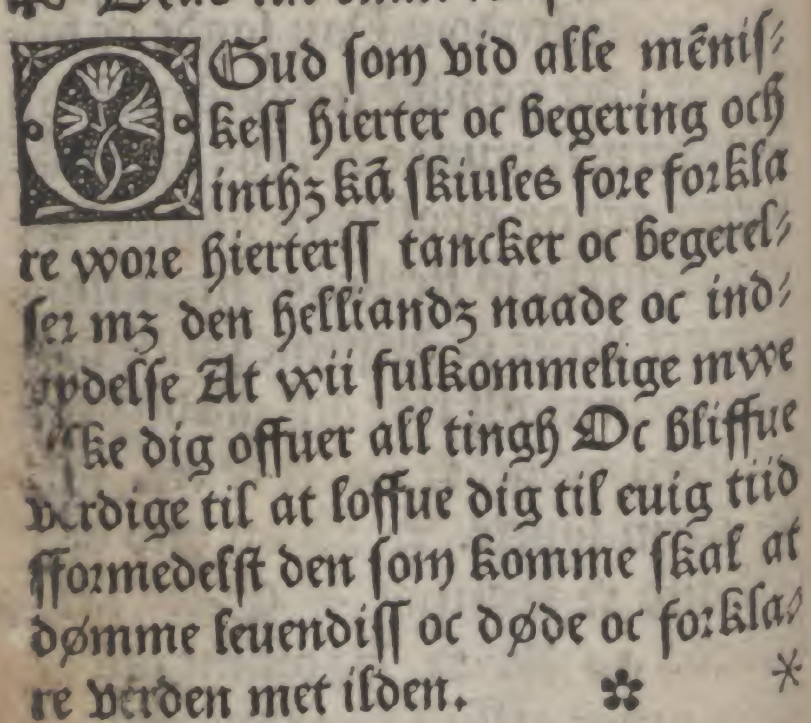 O Gud som vid alle mēnis⸗
kess hierter oc begering och
inthꝫ kā skiules fore forkla
re wore hierterss tancker oc begerel⸗
ser mꝫ den helliandꝫ naade oc ind⸗
delse At wii fulkommelige mwe
dig offuer all tingh Oc bliffue
verdige til at loffue dig til euig tiid
fformedelst den som komme skal at
dømme leuendiss oc døde oc forkla⸗
re verden met ilden.